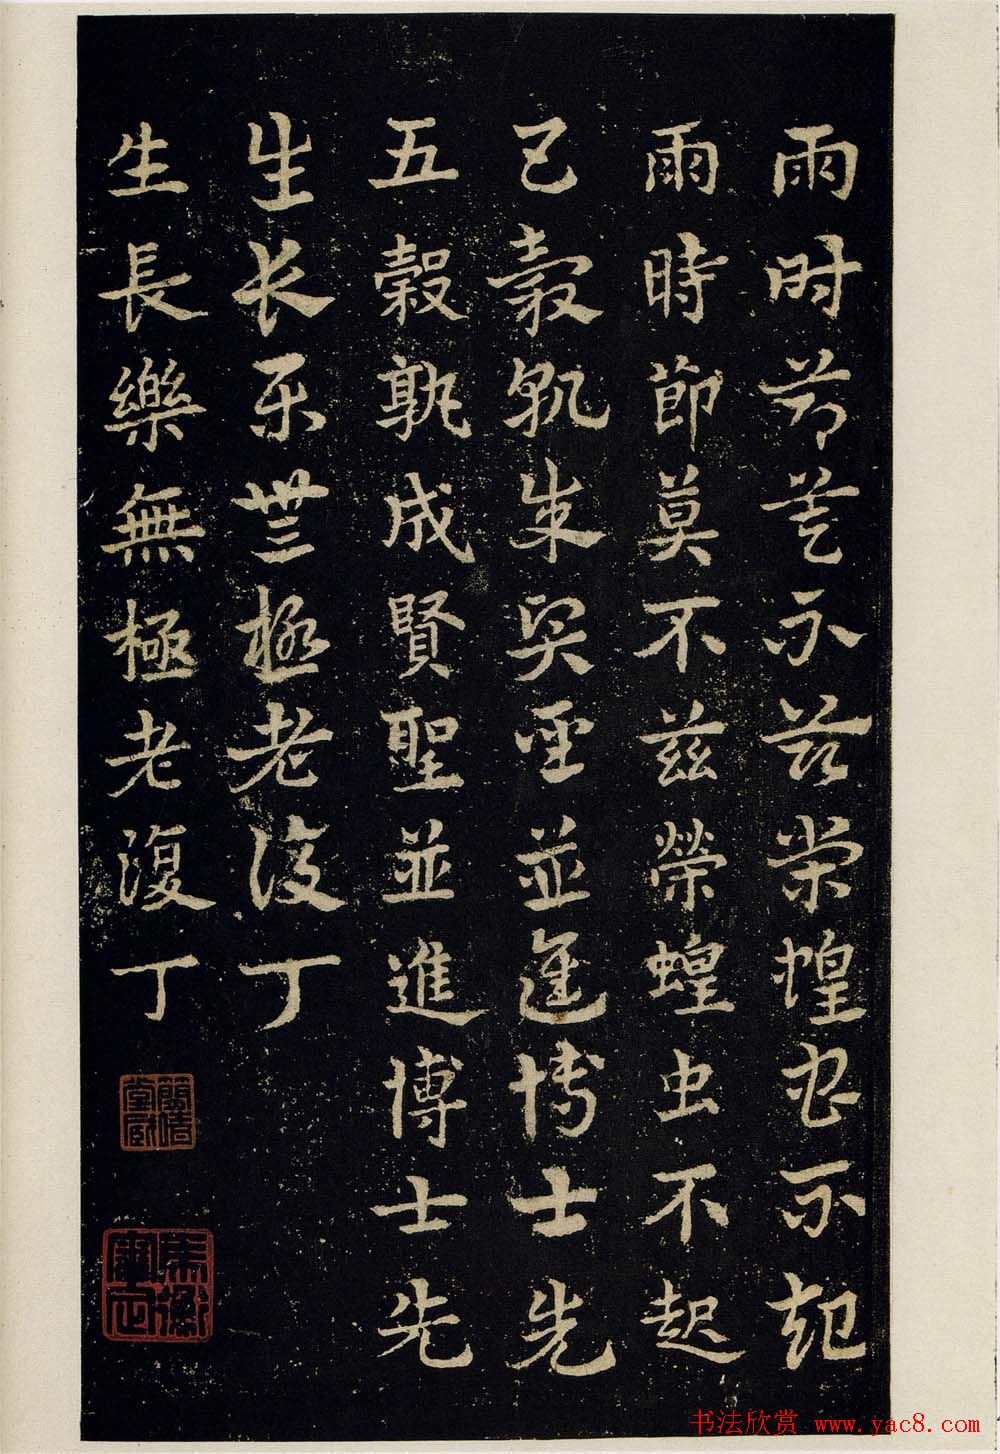 雨时节莫不兹荣蝗虫不起
雨時節莫不兹榮蝗虫不起
五穀孰成賢聖並進博士先
五穀孰成賢聖並進博士先
生长乐無極老復丁
生長樂無極老復丁
馬衡審定
书法欣赏 www.yac8.com